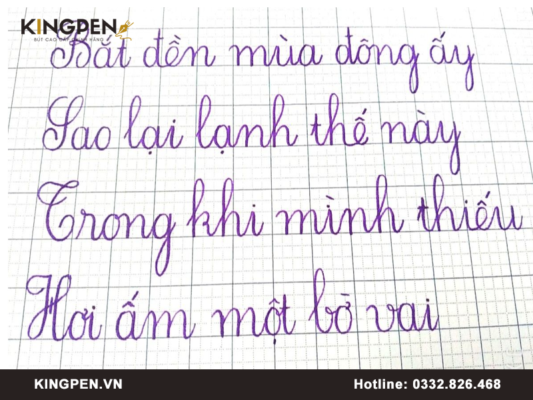 KINGPEN
BÚT CAO CẤP CHÍNH HÃNG
Bắt đền mùa đông ấy
Sao lại lạnh thế này
Trong khi mình thiếu
Hơi ấm một bờ vai
KINGPEN.VN
Hotline: 0332.826.468